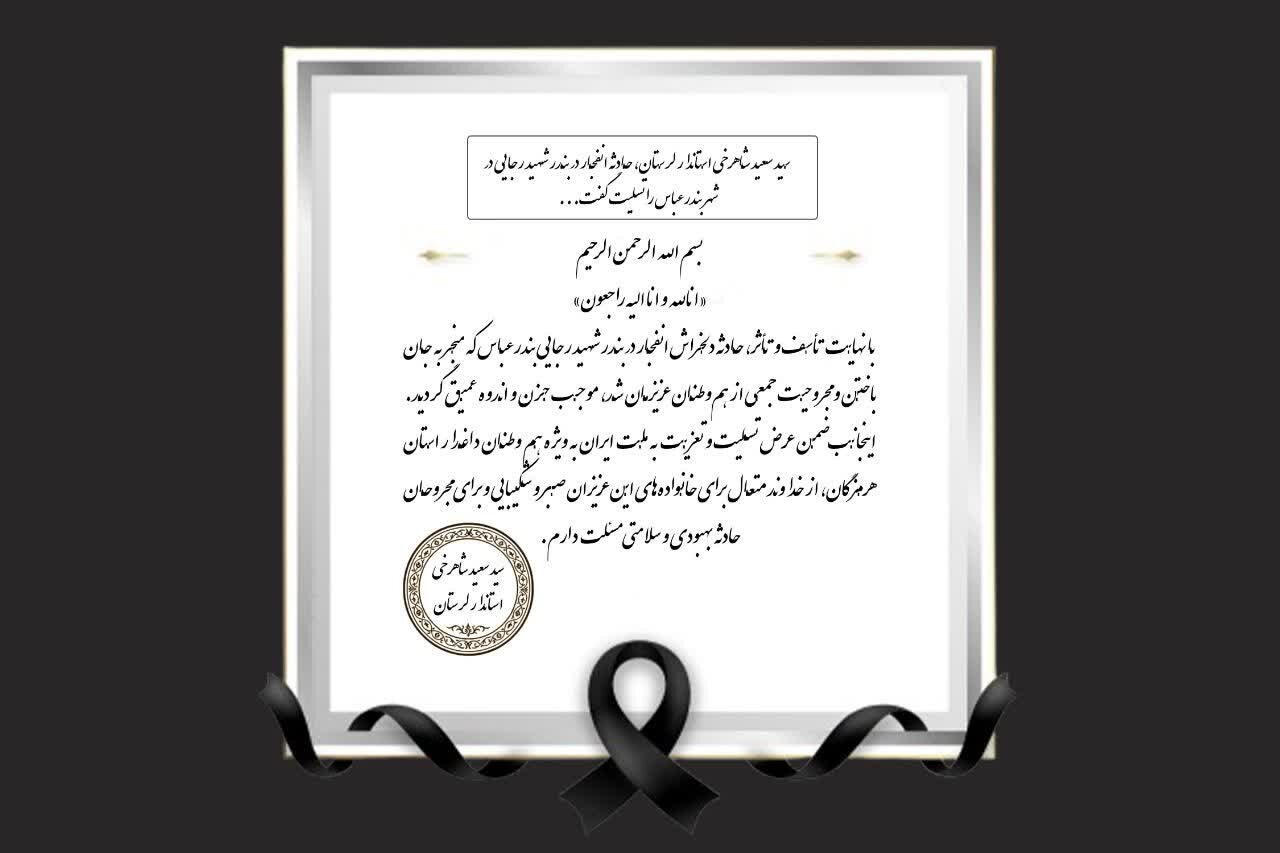 سید سعید شاهرخی استاندار لرستان، حادثه انفجار در بندر شهید رجایی در
شهر بندرعباس را تسلیت گفت...
بسم الله الرحمن الرحیم
«انالله و انا الیه راجعون»
با نهایت تأسف و تأثر، حادثه دلخراش انفجار در بندر شهید رجایی بندرعباس که منجر به جان
باختن و مجروحیت جمعی از هم وطنان عزیزمان شد، موجب حزن و اندوه عمیق گردید.
اینجانب ضمن عرض تسلیت و تعزیت به ملت ایران به ویژه هم وطنان داغدار استان
هرمزگان، از خداوند متعال برای خانواده های این عزیزان صبر و شکیبایی و برای مجروحان
حادثه بهبودی و سلامتی مسئلت دارم.
سید سعید شاهرخی
استاندار لرستان